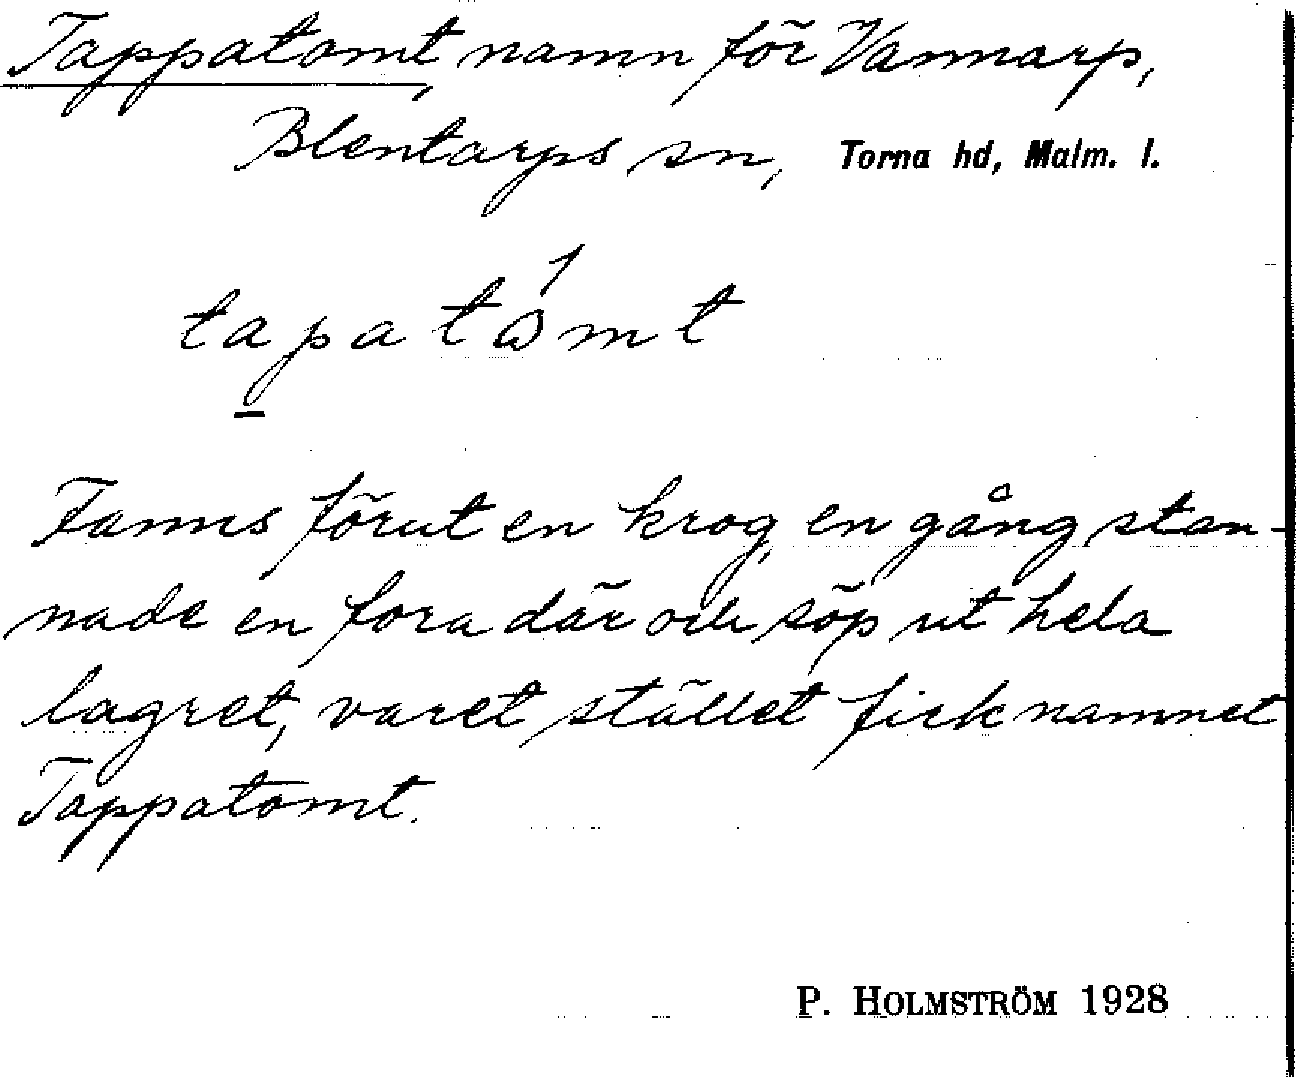 Tappatomt, namn för Vannarp,
Blentarps sn, Torna hd, Malm. l.
tapatåmt
Fanns förut en krog, en gång stan-
nade en fora där och söp ut hela
lagret, varet stället fick namnet
Tappatomt.
P. HOLMSTRÖM 1928